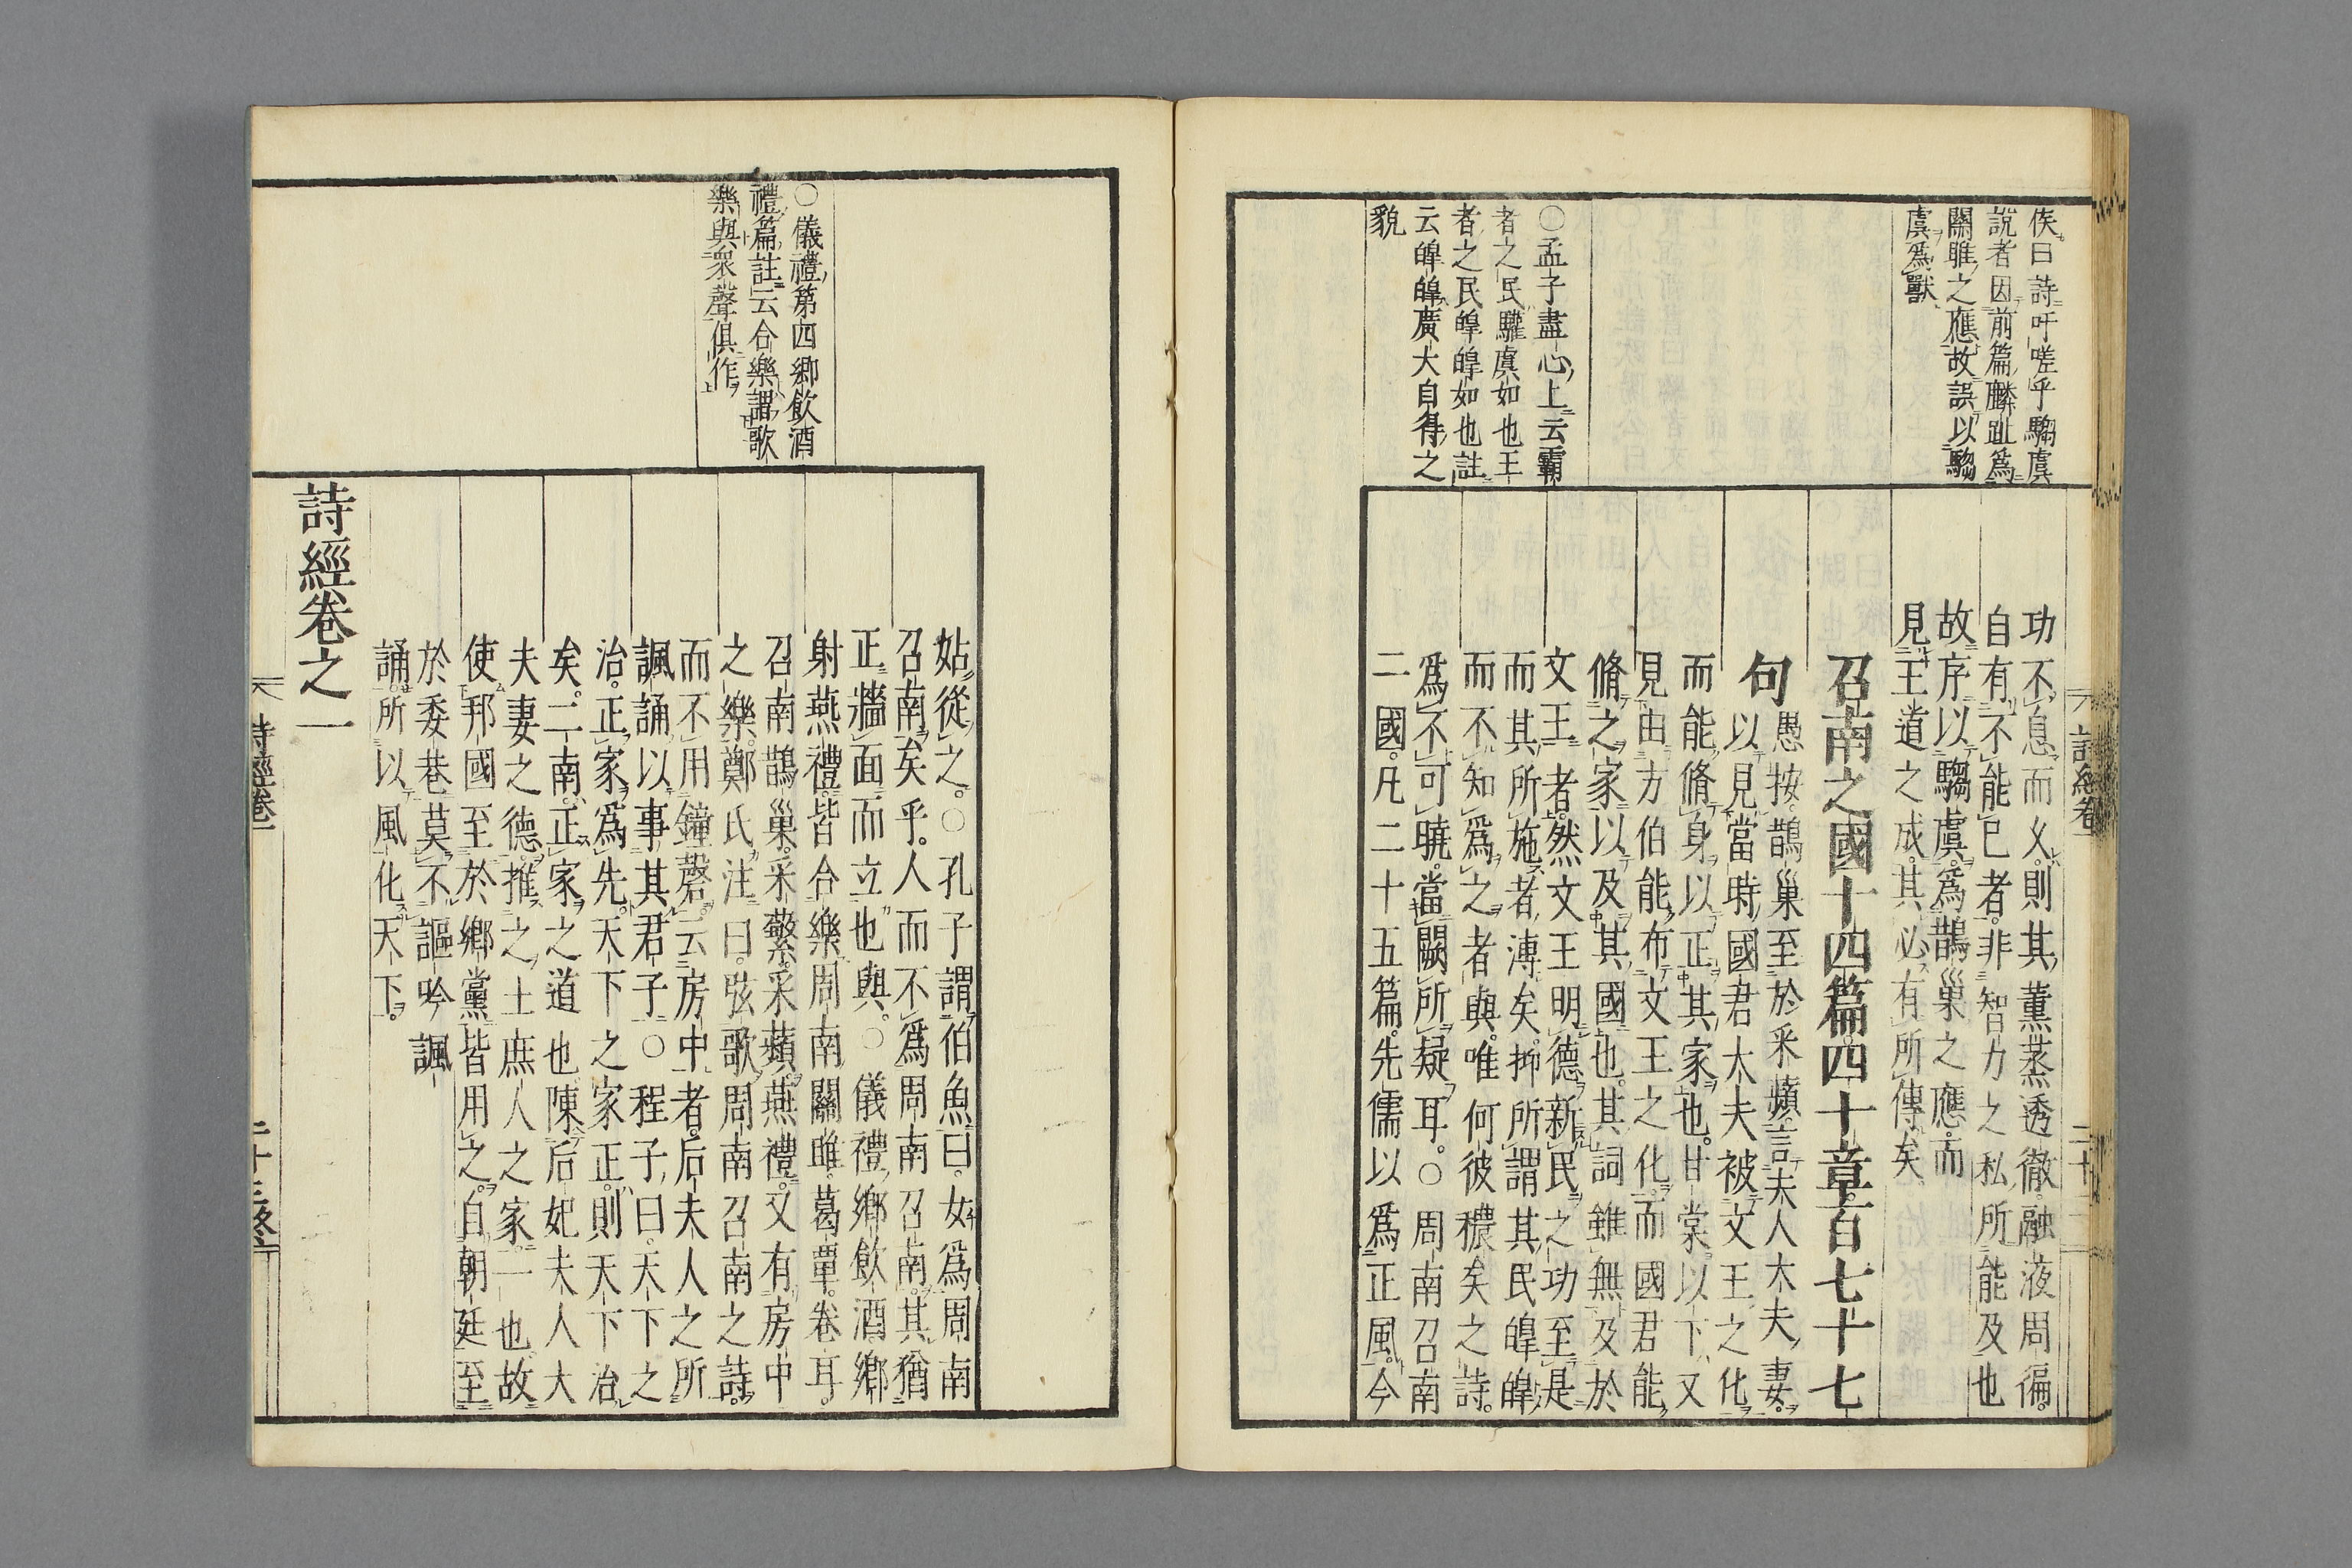 俟曰詩吁嗟乎騶虞
說者因前篇麟趾爲
關雎之應故誤以騶
虞爲獸
○孟子盡心上云霸
者之民驩虞如也王
者之民皥皥如也註
云皥皥廣大自得之
貌
功不息而久則其薰蒸透徹融液周徧
自有不能已者非智力之私所能及也
故序以騶虞爲鵲巢之應而
見王道之成其必有所傳矣
召南之國十四篇四十章百七十七
句愚按鵲巢至於采蘋言夫人大夫妻
以見當時國君大夫被文王之化
而能脩身以正其家也甘棠以下又
見由方伯能布文王之化而國君能
脩之家以及其國也其詞雖無及於
文王者然文王明德新民之功至是
而其所施者溥矣抑所謂其民皥皥
而不知爲之者與唯何彼穠矣之詩
爲不可曉當闕所疑耳○周南召南
二國凡二十五篇先儒以爲正風今
詩經卷一
○儀禮第四鄉飲酒
禮篇註云合樂謂歌
樂與衆聲俱作
姑從之○孔子謂伯魚曰女爲周南
召南矣乎人而不爲周南召南其猶
正牆面而立也與○儀禮鄉飲酒鄉
射燕禮皆合樂周南關雎葛覃卷耳
召南鵲巢采蘩采蘋燕禮又有房中
之樂鄭氏注曰弦歌周南召南之詩
而不用鐘磬云房中者后夫人之所
諷誦以事其君子○程子曰天下之
治正家爲先天下之家正則天下治
矣二南正家之道也陳后妃夫人大
夫妻之德推之士庶人之家一也故
使邦國至於鄉黨皆用之自朝廷至
於委巷莫不謳吟諷
誦所以風化天下
詩經卷之一
詩經卷一
二十三終